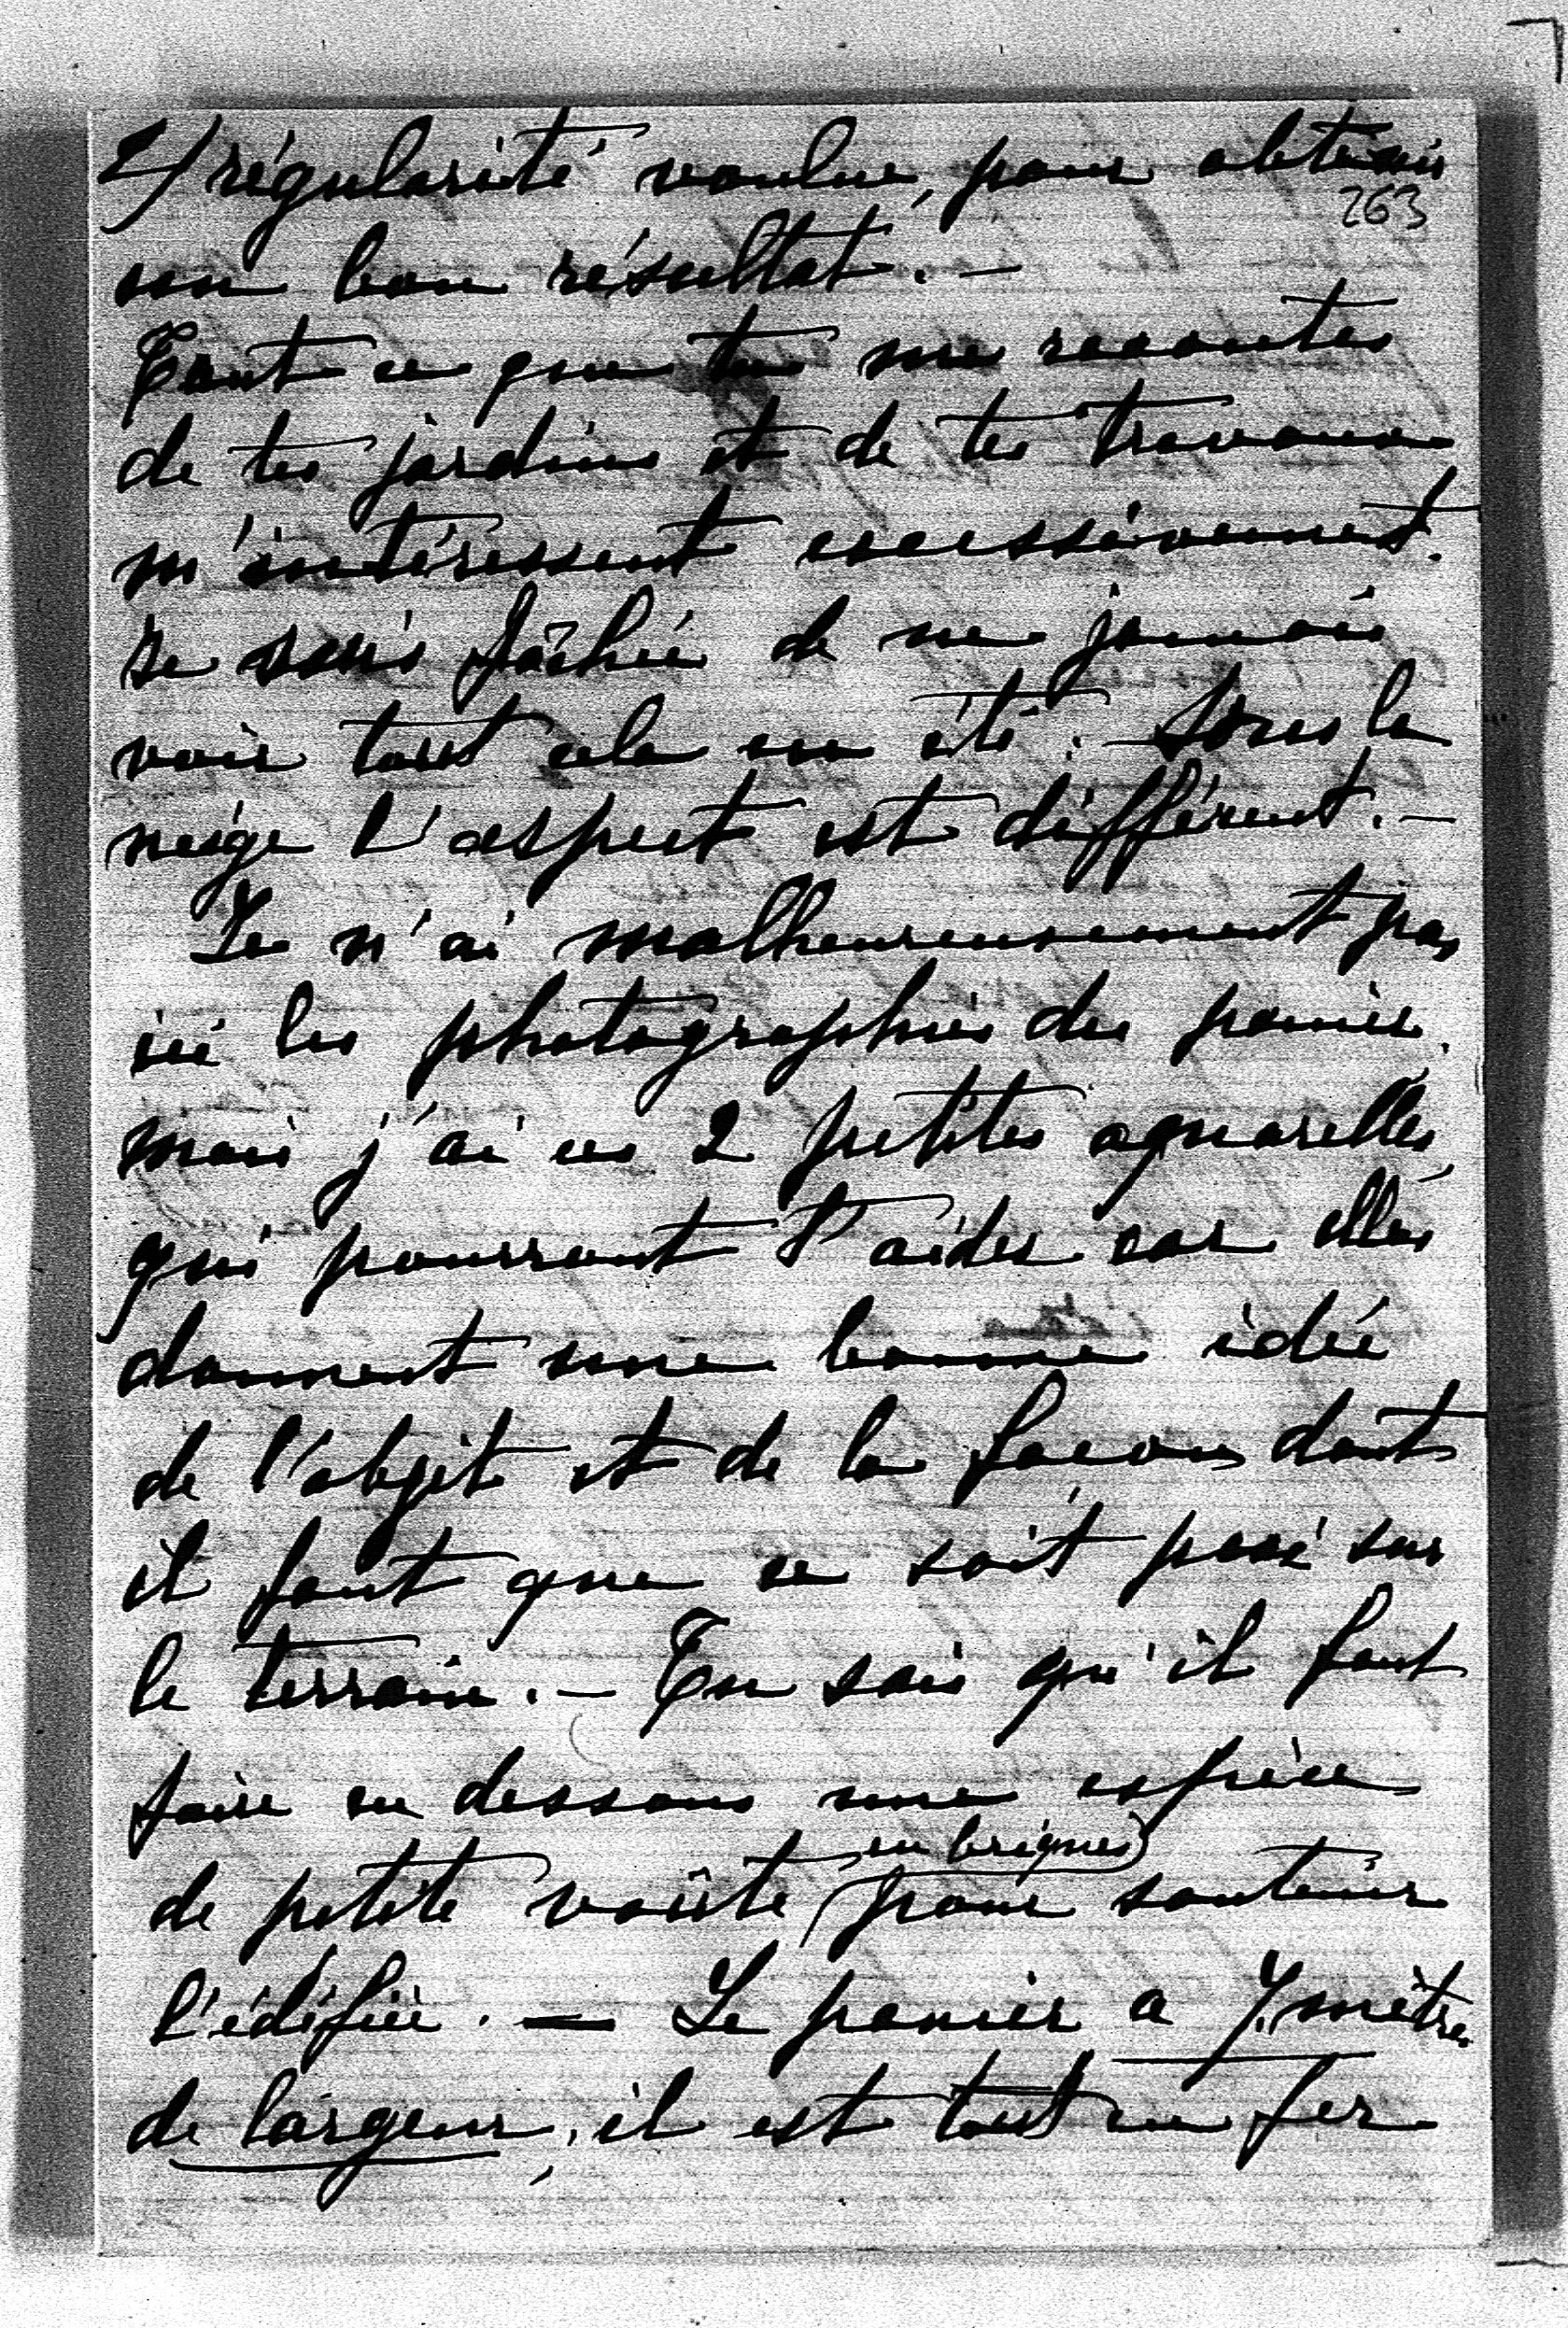 2/ régularité voulue, pour obtenir
263
un bon résultat. —
Tout ce que tu me racontes
de tes jardins et de tes travaux
m'intéressent excessivement.
Je suis fâchée de ne jamais
voir tout cela en été. Sous la
neige l'aspect est différent. —
Je n'ai malheureusement pas
ici les photographies des paniers,
mais j'ai eu 2 petites aquarelles
qui pourront t'aider car elles
donnent une bonne idée
de l'objet et de la façon dont
il faut que ce soit posé sur
le terrain. — Tu sais qu'il faut
faire en dessous une espèce
de petite voûte (en briques) pour soutenir
l'édifice. — Le panier a 7 mètres
de largeur, il est tout en fer